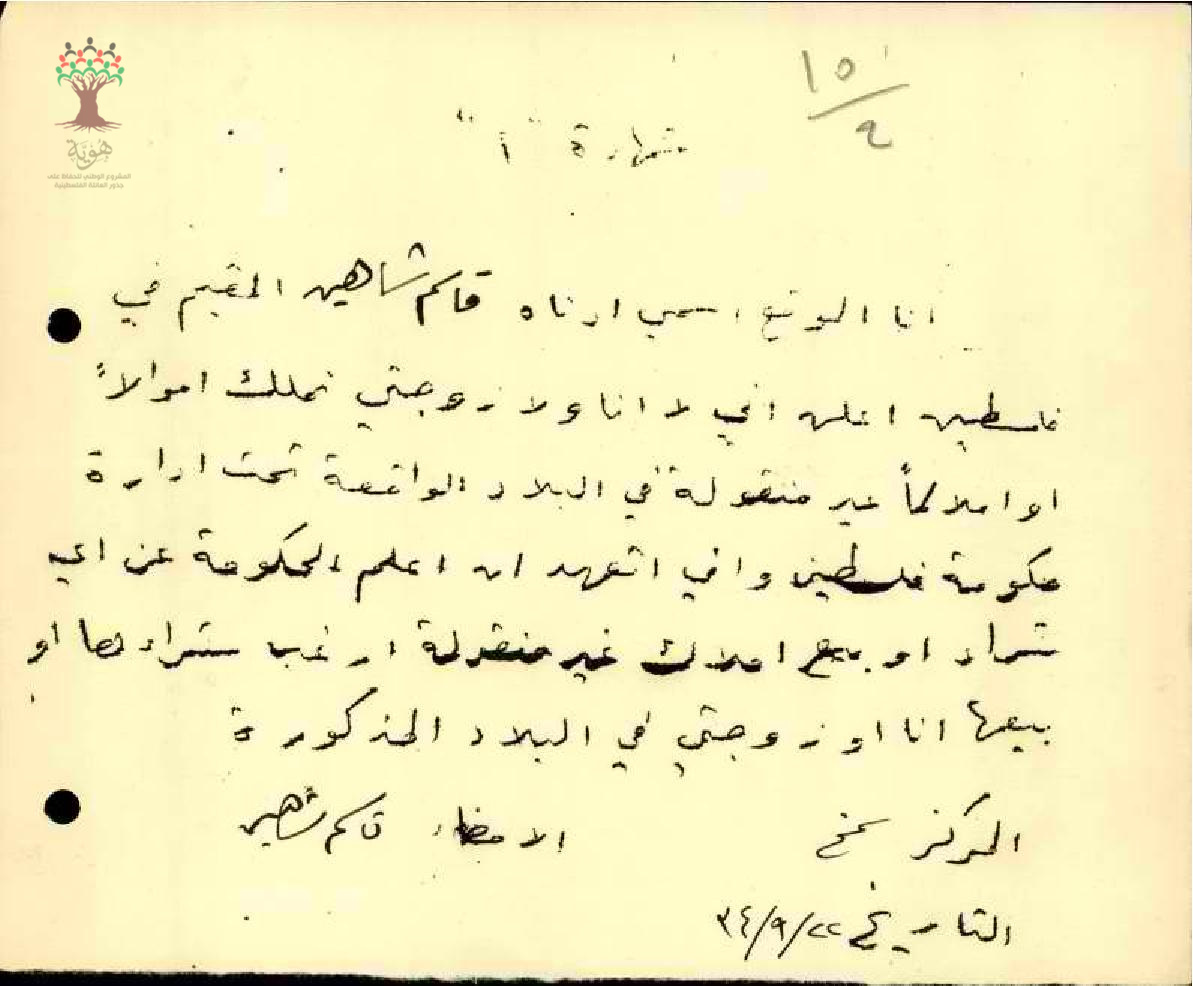 ١٥/٤
هُوِيَّة
المشروع الوطني للحفاظ على
جذور العائلة الفلسطينية
شهادة "أ"
انا الموقع اسمي ادناه قاسم شاهين المقيم في
فلسطين اعلن اني لا انا ولا زوجتي نملك اموالاً
او املاكاً غير منقولة في البلاد الواقعة تحت ادارة
حكومة فلسطين واني اتعهد ان اعلم الحكومة عن اي
شراء او بيع املاك غير منقولة ارغب شراءها او
بيعها انا او زوجتي في البلاد المذكورة
المركز سمخ
الامضاء قاسم شاهين
التاريخ ٢٢/٩/٣٤